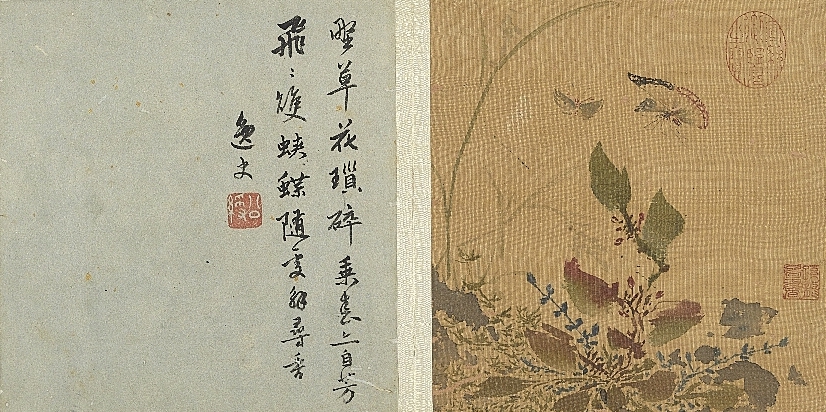 野草花瑣碎乘春亦自芳
飛〻雙蛺蝶隨處解尋香
逸史